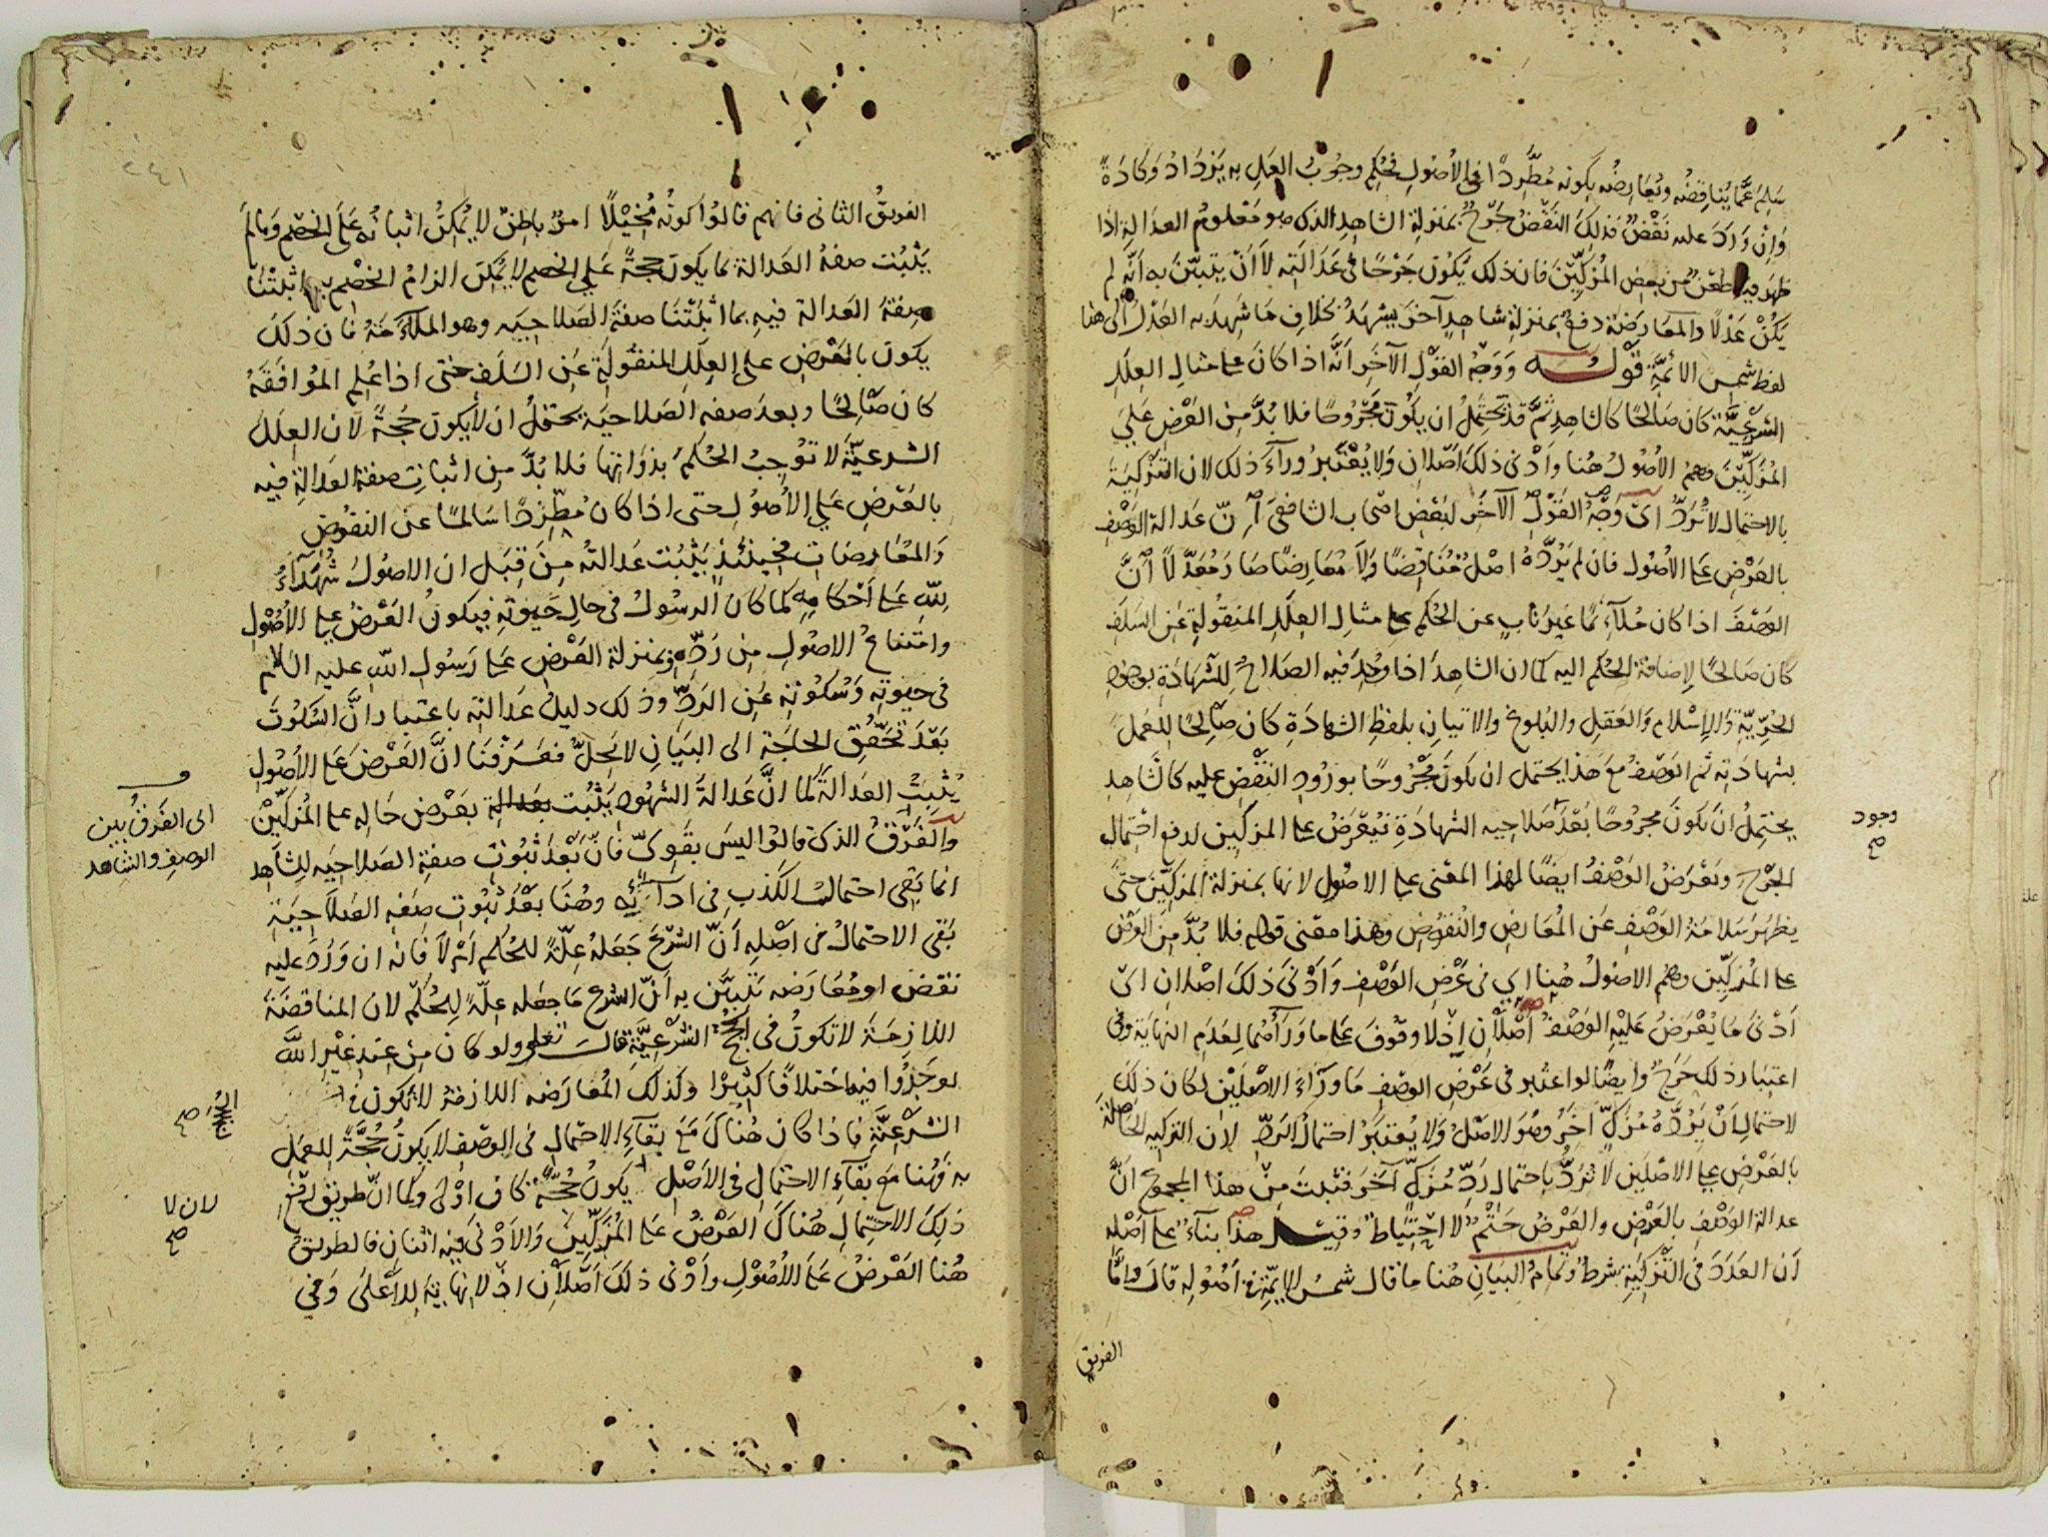 سلم عما يناقضه ويعارضه بكونه مطردا في الأصول فحكم وجوب العمل به يزداد وكادة
وإن ورد عليه نقض فذلك النقض جرح بمنزلة الشاهد الذي هو معلوم العدالة إذا
ظهر فيه طعن من بعض المزكين فان ذلك يكون جرحا في عدالته لا أن يتبين به أنه لم
يكن عدلا والمعارضة دفع بمنزلة شاهد آخر يشهد بخلاف ما شهد به العدل إلى هنا
لفظ شمس الأئمة قوله ووجه القول الآخر أنه اذا كان على مثال العلل
الشرعية كان صالحا كالشاهد ثم قد يحتمل ان يكون مجروحا فلا بد من العرض على
المزكين وهم الأصول هنا وأدنى ذلك أصلان ولا يعتبر وراء ذلك لان التزكية
بالاحتمال لا ترد أي وجه القول الآخر لبعض أصحاب الشافعي أن عدالة الوصف
بالعرض على الأصول فان لم يرده اصل مناقضا ولا معارضا صار معدلا لأن
الوصف اذا كان ملائما غير ناب عن الحكم على مثال العلل المنقولة عن السلف
كان صالحا لإضافة الحكم اليه كما ان الشاهد اذا وجد فيه الصلاح للشهادة بوجود
الحرية والإسلام والعقل والبلوغ والاتيان بلفظ الشهادة كان صالحا للعمل
بشهادته ثم الوصف مع هذا يحتمل ان يكون مجروحا بورود النقض عليه كالشاهد
يحتمل أن يكون مجروحا بعد صلاحيه الشهادة فيعرض على المزكين لدفع احتمال
وجود
صح
الجرح ويعرض الوصف ايضا لهذا المعنى على الاصول لانها بمنزلة المزكين حتى
يظهر سلامة الوصف عن المعارض والنقوض وهذا معنى قوله فلا بد من العرض
على المزكين وهم الاصول هنا اي في عرض الوصف وأدنى ذلك اصلان اي
أدنى ما يعرض عليه الوصف أصلان إذ لا وقوف على ما وراءهما لعدم النهاية وفي
اعتبار ذلك حرج وايضا لو اعتبر في عرض الوصف ما وراء الاصلين لكان ذلك
لاحتمال أن يرده مزك آخر وهو الاصل ولا يعتبر احتمال الرد لان التزكيه الحاصلة
بالعرض على الاصلين لا ترد باحتمال رد مزك آخر فثبت من هذا المجموع ان
عدالة الوصف بالعرض والعرض حتم لا احتياط وقيل هذا بناء على أصله
أن العدد في التزكية شرط وتمام البيان هنا ما قال شمس الايمة في أصوله قال واما
الفريق
٢٤١
الفريق الثاني فانهم قالوا كونه مخيلا امر باطن لا يمكن اثباته على الخصم وما لم
يثبت صفة العدالة بما يكون حجة على الخصم لا يمكن الزام الخصم به اثبتنا
صفة العدالة فيه بما اثبتنا صفة الصلاحيه وهو الملاءمة فان ذلك
يكون بالعرض على العلل المنقولة عن السلف حتى اذا علم الموافقة
كان صالحا وبعد صفه الصلاحية يحتمل ان لا يكون حجة لان العلل
الشرعية لا توجب الحكم بذواتها فلا بد من اثبات صفة العدالة فيه
بالعرض على الأصول حتى اذا كان مطردا سالما عن النقوض
والمعارضات فحينئذ يثبت عدالته من قبل ان الاصول شهداء
لله على أحكامه كما كان الرسول في حال حيوته فيكون العرض على الأصول
وامتناع الاصول من رده بمنزلة العرض على رسول الله عليه السلام
في حيوته وسكوته عن الرد وذلك دليل عدالته باعتبار أن السكوت
بعد تحقق الحاجة الى البيان لا يحل فعرفنا ان العرض على الأصول
يثبت العدالة كما ان عدالة الشهود يثبت بعرض حاله على المزكين
والفرق الذي قالوا ليس بقوي فان بعد ثبوت صفة الصلاحيه للشاهد
اي الفرق بين
الوصف والشاهد
انما بقي احتمال الكذب في ادائه وهنا بعد ثبوت صفه الصلاحية
بقي الاحتمال في أصله أن الشرع جعله علة للحكم أم لا فانه ان ورد عليه
نقض او معارضه تبين به أن الشرع ما جعله علة للحكم لان المناقضة
اللازمة لا تكون في الحجج الشرعية قال تعالى ولو كان من عند غير الله
لوجدوا فيه اختلافا كثيرا وكذلك المعارضه اللازمة لا تكون في
صح
الشرعية فاذا كان هناك مع بقاء الاحتمال في الوصف لا يكون حجة للعمل
به فهنا مع بقاء الاحتمال في الاصل يكون حجة كان اولى وكما ان طريق رفع
لان لا
صح
ذلك الاحتمال هناك العرض على المزكين والادنى فيه اثنان فالطريق
هنا العرض على الاصول وأدنى ذلك أصلان اذ لا نهاية للأعلى وفي